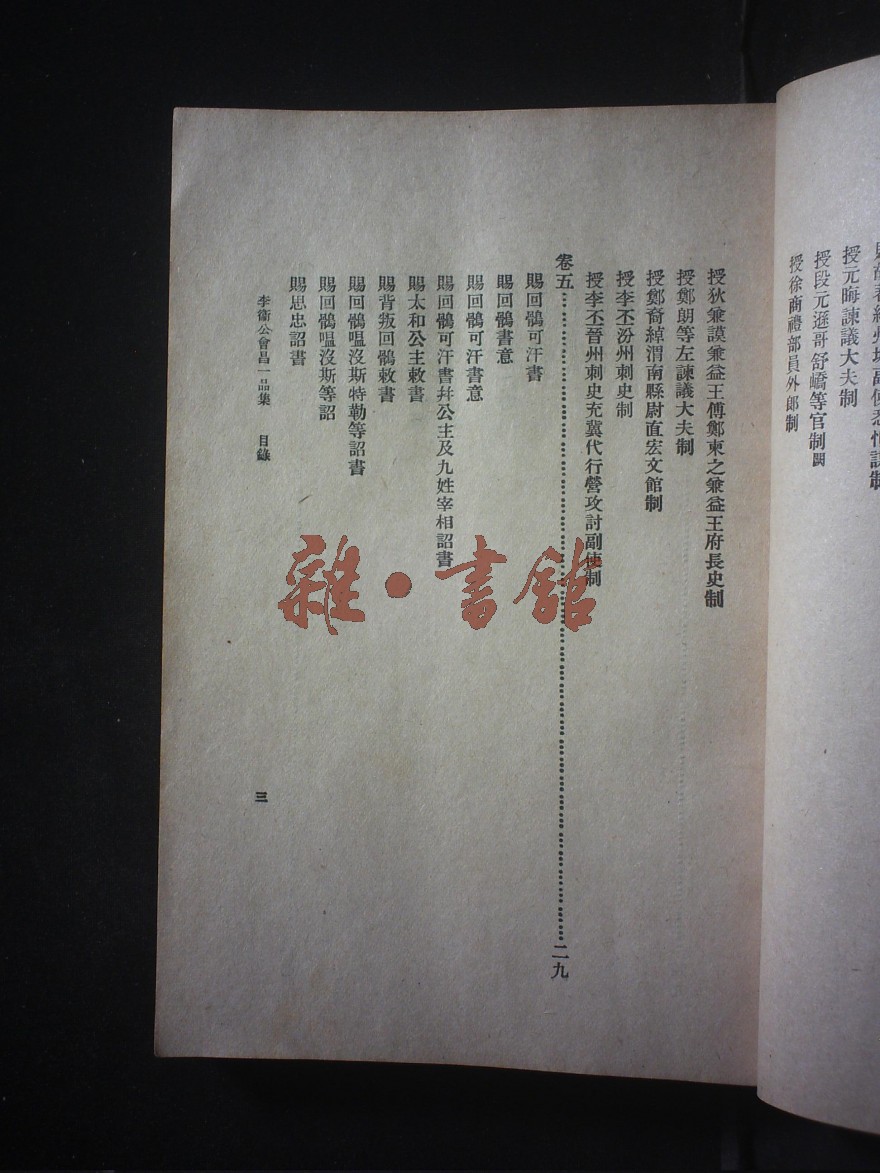 授元晦諫議大夫制
授段元遜哥舒嶠等官制闕
授徐商禮部員外郎制
授狄兼謨兼益王傅鄭柬之兼益王府長史制
授鄭朗等左諫議大夫制
授鄭裔綽渭南縣尉直宏文館制
授李丕汾州刺史制
授李丕晉州刺史充冀代行營攻討副使制
卷五……二九
賜回鶻可汗書
賜回鶻書意
賜回鶻可汗書意
賜回鶻可汗書幷公主及九姓宰相詔書
賜太和公主敕書
賜背叛回鶻敕書
賜回鶻嗢沒斯特勒等詔書
賜回鶻嗢沒斯等詔
賜思忠詔書
李衞公會昌一品集 目錄 三
雜·書館